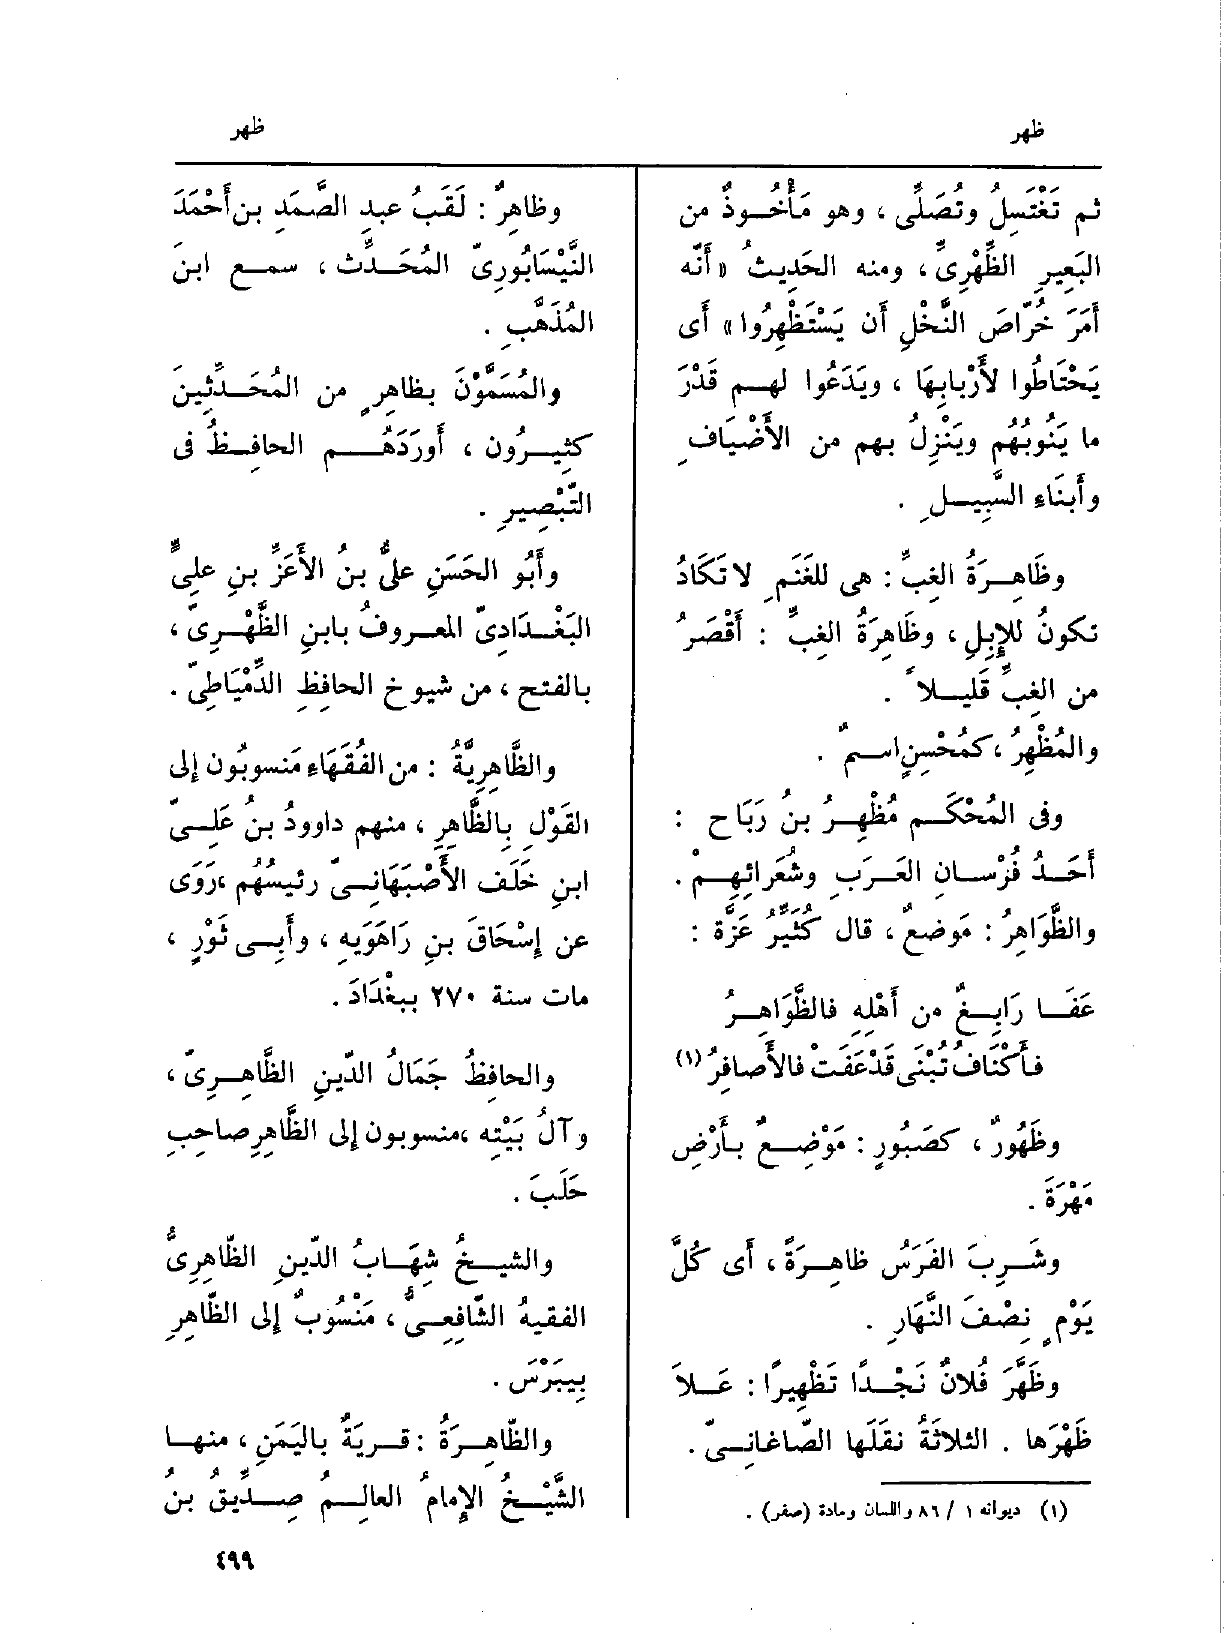 ظهر
ظهر
ثم تَغْتَسِلُ وتُصَلِّى ، وهو مَأْخُـوذٌ من
البَعِيرِ الظِّهْرِىِّ ، ومنه الحَدِيثُ «أَنَّه
أَمَرَ خُرّاصَ النَّخْلِ أَن يَسْتَظْهِرُوا» أَى
يَحْتَاطُوا لأَرْبابِهَا ، ويَدَعُوا لهـم قَدْرَ
ما يَنُوبُهُم ويَنْزِلُ بهم من الأَضْيَافِ
وأَبنَاءِ السَّبِيـلِ .
وظَاهِـرَةُ الغِبِّ : هى للغَنَمِ لاتَكَادُ
تكونُ للإِبِلِ ، وظَاهِرَةُ الغِبِّ : أَقْصَرُ
من الغِبِّ قَلِيـلاً .
والمُظْهِرُ ، كمُحْسِنٍ اسـمٌ .
وفى المُحْكَـم مُظْهِـرُ بنُ رَبَاح :
أَحَـدُ فُرْسـانِ العَـرَبِ وشُعَرائِهِـمْ .
والظَّوَاهِرُ : مَوضعٌ ، قال كُثَيِّرُ عَزَّة :
عَفَـا رَابِـغٌ من أَهْلِهِ فالظَّوَاهِـرُ
فأَكْنَافُ تُبْنَى قَدْعَفَتْ فالأَصافِرُ (١)
وظَهُورٌ ، كصَبُورٍ : مَوْضِـعٌ بـأَرْضِ
مَهْرَةَ .
وشَـرِبَ الفَرَسُ ظاهِـرَةً ، أَى كُلَّ
يَوْمٍ نِصْفَ النَّهَارِ .
وظَهَّرَ فُلانٌ نَجْـدًا تَظْهِيرًا : عَـلاَ
ظَهْرَها . الثلاثَةُ نقَلَها الصّاغانِـىّ .
(١) ديوانه ١ / ٨٦ واللسان ومادة (صفر) .
وظاهِرٌ : لَقَبُ عبدِ الصَّمَدِ بن أَحْمَدَ
النَّيْسَابُورِىّ المُحَـدِّث ، سمـع ابنَ
المُذَهَّبِ .
والمُسَمَّوْنَ بظاهِرٍ من المُحَـدِّثِينَ
كثِيـرُون ، أَورَدَهُـم الحافِـظُ فى
التَّبْصِيرِ .
وأَبُو الحَسَنِ علىُّ بنُ الأَعَزِّ بنِ علىٍّ
البَغْـدَادِىّ المعـروفُ بابنِ الظَّهْـرِىّ ،
بالفتح ، من شيوخ الحافظِ الدِّمْيَاطِىّ .
والظَّاهِرِيَّةُ : من الفُقَهَاءِ مَنسوبُون إِلى
القَوْلِ بِالظَّاهِرِ ، منهم داوودُ بنُ عَلِـىّ
ابنِ خَلَف الأَصْبَهَانِـىّ رئيسُهُم ،رَوَى
عن إِسْحَاقَ بنِ رَاهَوَيهِ ، وأَبِـى ثَوْرٍ ،
مات سنة ٢٧٠ ببغْدَادَ .
والحافِظُ جَمَالُ الدّينِ الظَّاهِـرِىّ ،
وآلُ بَيْتِه ،منسوبون إِلى الظَّاهِرِصاحِبِ
حَلَبَ .
والشيـخُ شِهَـابُ الدّينِ الظّاهِرِىُّ
الفقيهُ الشّافِعِـىُّ ، مَنْسُوبٌ إِلى الظّاهِرِ
بِيبَرْسَ .
والظّاهِـرَةُ : قـريَةٌ باليَمَنِ ، منهـا
الشَّيْـخُ الإِمامُ العالِـمُ صِـدِّيقُ بنُ
٤٩٩